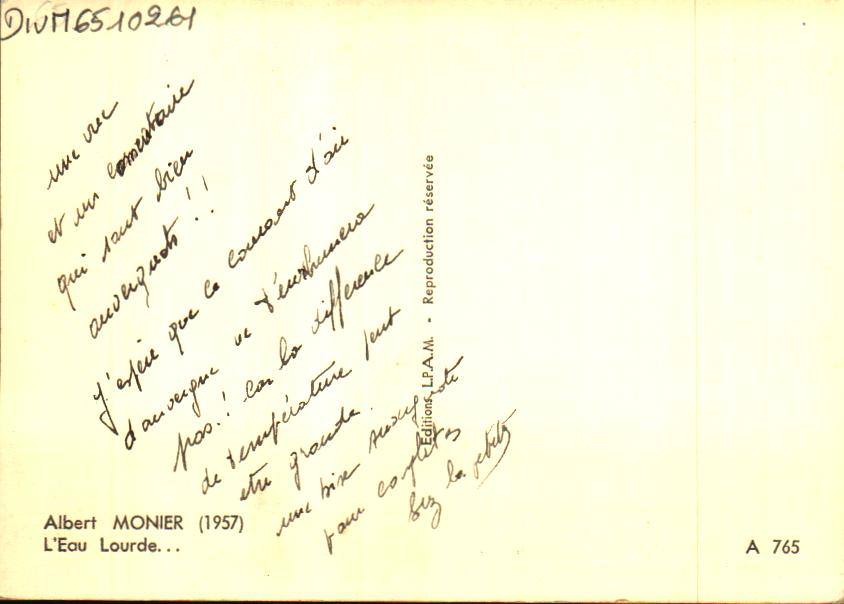 DIVM6510261
une vue
et un comentaire
qui sont bien
auvergnats !!
j'espère que le courant d'air
d'auvergne ne t'enrhumera
pas ! car la différence
de température peut
etre grande.
une bise auvergnate
pour completer
biz la petite
Editions L.P.A.M. • Reproduction réservée
Albert MONIER (1957)
L'Eau Lourde...
A 765